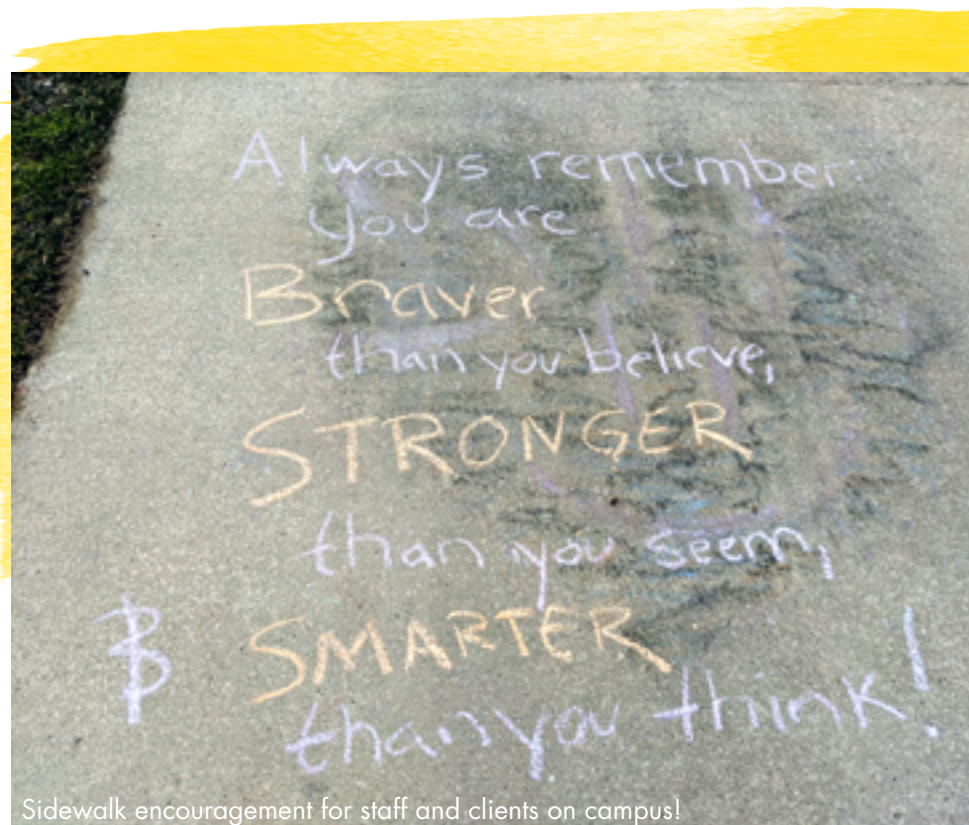 Always remember:
you are
Braver
than you believe,
STRONGER
than you seem,
& SMARTER
than you think!
Sidewalk encouragement for staff and clients on campus!